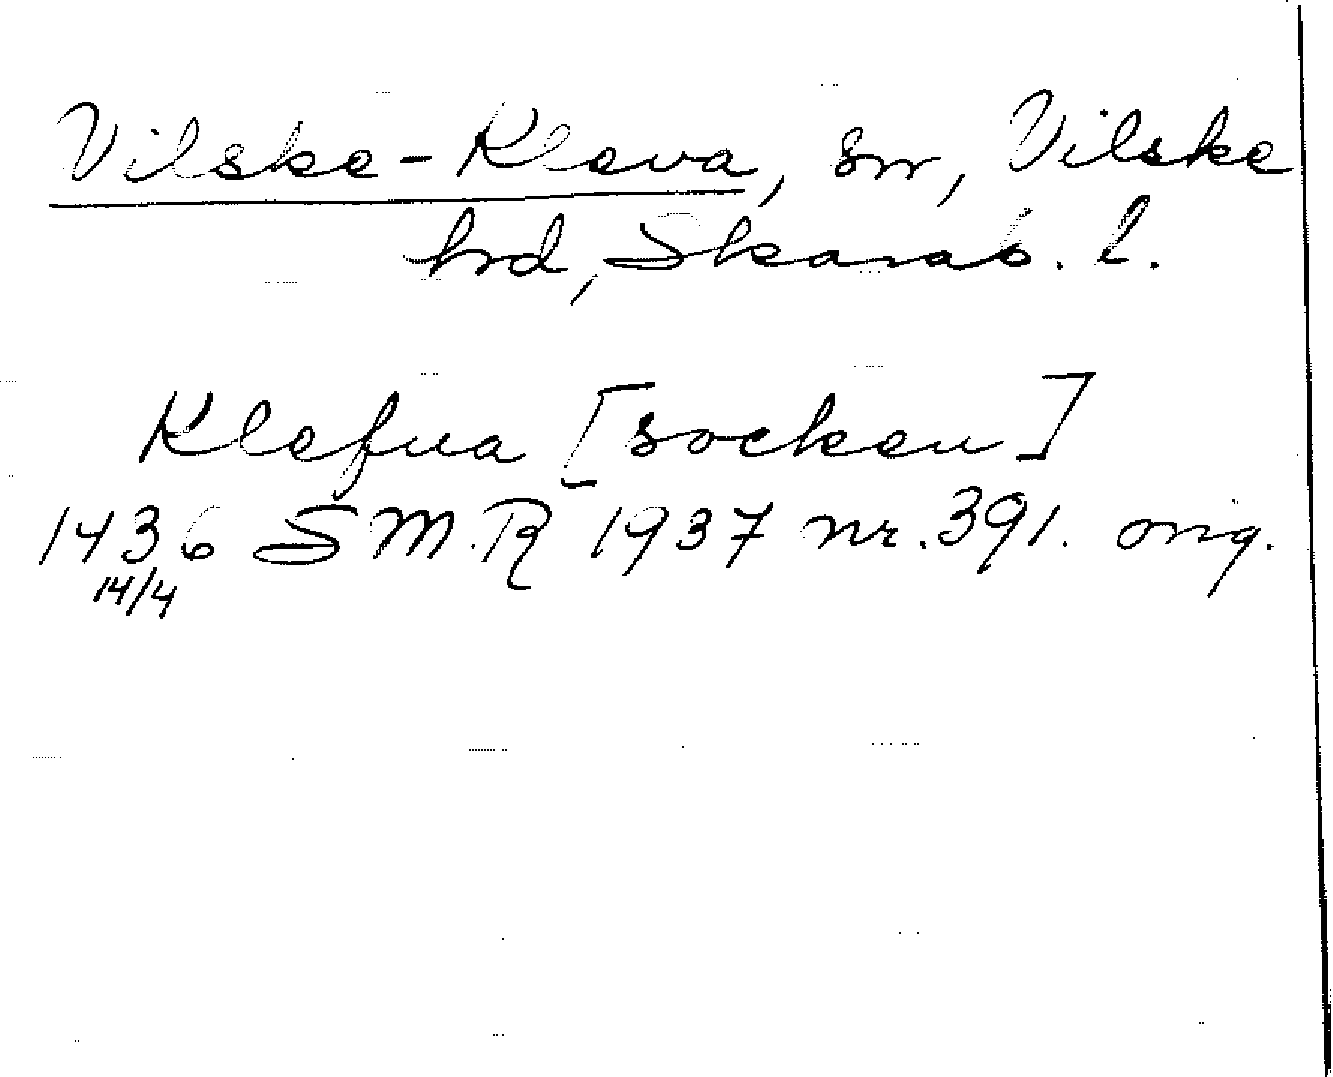 Vilske-Kleva, sn, Vilske
hrd, Skarab. l.
Klefua [socken]
1436 SMR 1937 nr. 391. orig.
14/4